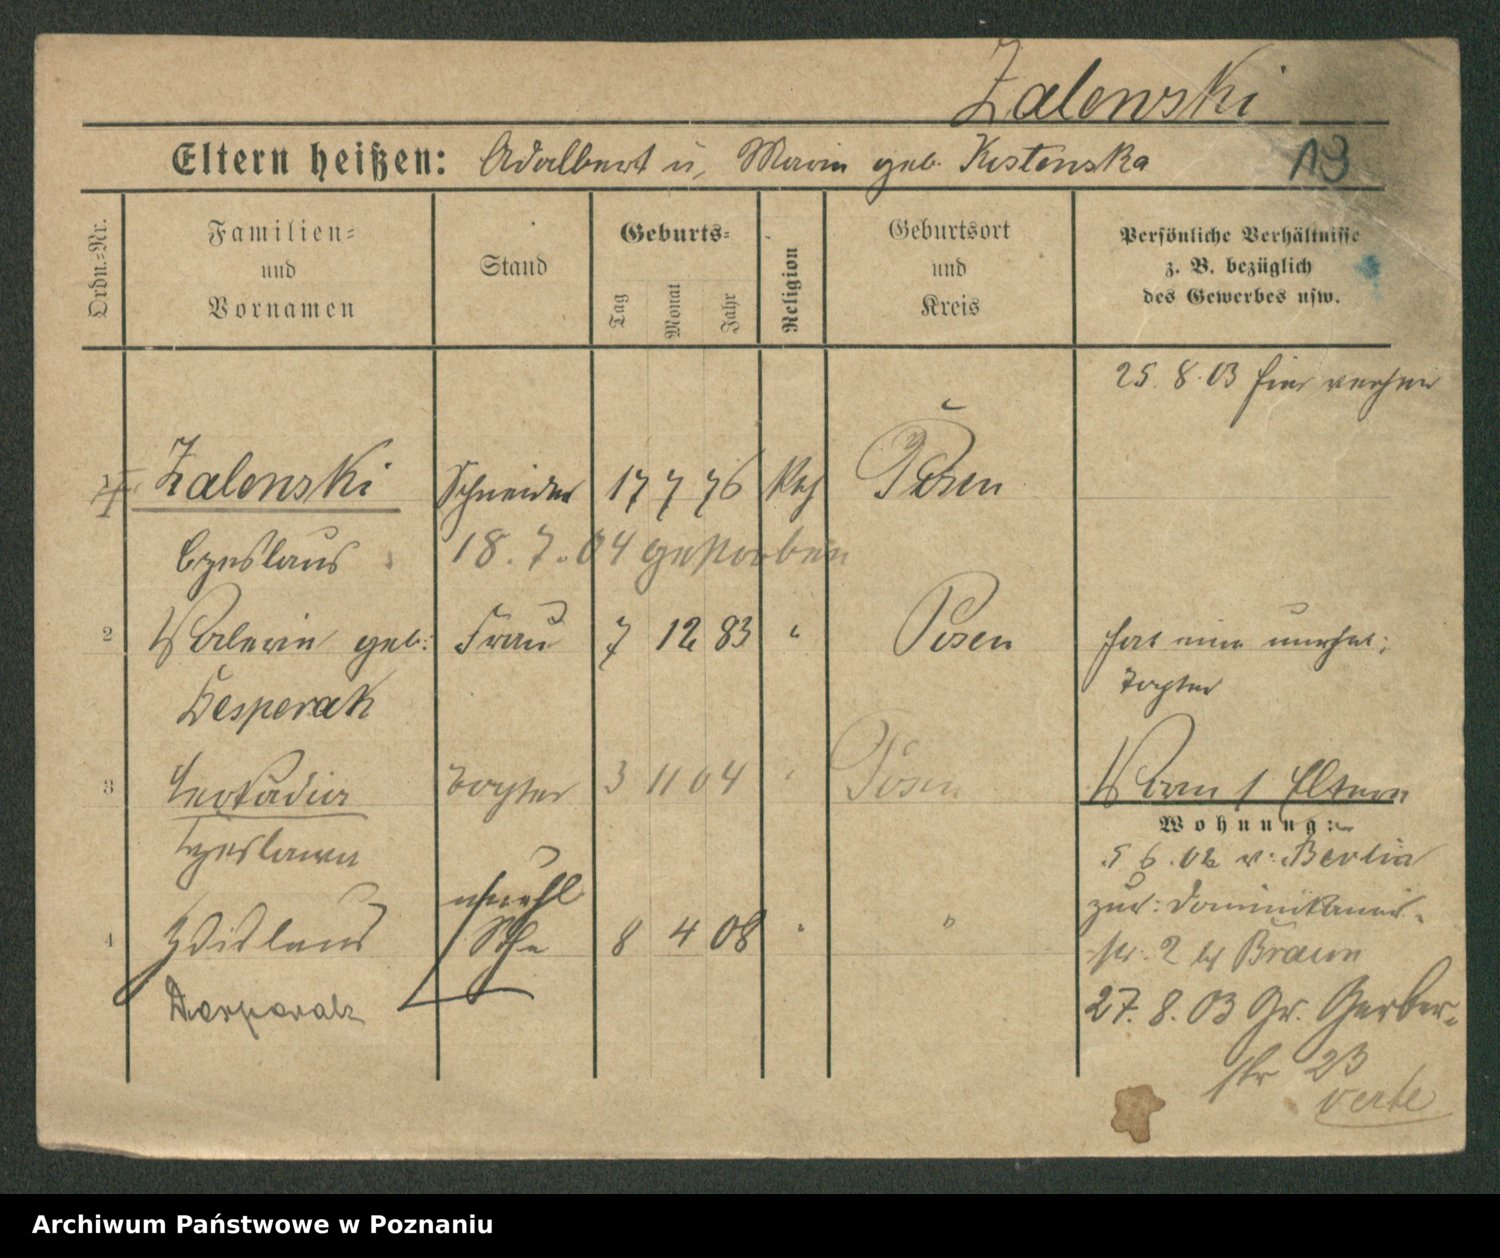 Zalewski
Eltern heißen: Adalbert u. Marie geb. Kostenska 13
Ordn.-Nr.
Familien-
und
Vornamen
Stand
Geburts-
Tag
Monat
Jahr
Religion
Geburtsort
und
Kreis
Persönliche Verhältnisse
z. B. bezüglich
des Gewerbes usw.
25. 8. 03 hier
Zalenski Schneider 17 7 76 kath Posen
Czeslaus 18. 7. 04 gestorben
2 Valerie geb. Frau 7 12 83 " Posen hat eine unehel.
Desperak Tochter
3 Leokadia Tochter 3 11 04 " Posen
Czeslawa
unehl
4 Zdislaus Sohn 8 4 08 " "
Desperak
Eltern
Wohnung:
5 6. 02 v. Berlin
zur: Dominikaner-
str. 2 bei Braun
27. 8. 03 Gr. Gerber-
str 23
verte
Archiwum Państwowe w Poznaniu